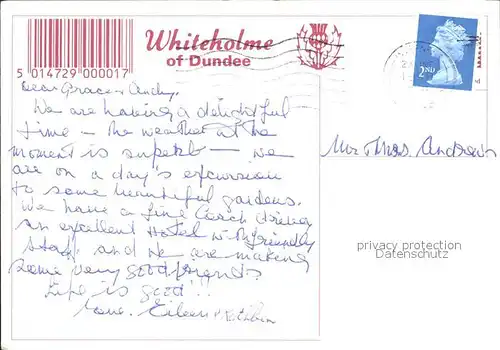 Whiteholme
of Dundee
5 014729 000017
2ND
Dear Grace & Andy.
We are having a delightful
time – the weather at the
moment is superb – we
are on a day's excursion
to some beautiful gardens.
We have a fine Coach driver
an excellent Hotel w
Staff and we are making
some very good friends.
Life is good!!
Love. Eileen
Mr & Mrs Andrews
privacy protection
Datenschutz